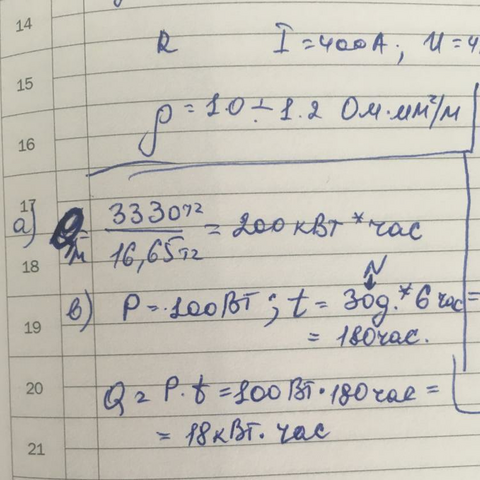 14
R I = 400A; U = 4
15
ρ = 1.0 ÷ 1.2 Ом·мм²/м
16
17
a) Q/м = 3330тг / 16,65тг = 200 кВт * час
18
N
в) P = 100Вт; t = 30д. * 6 час =
19
= 180час.
20
Q = P·t = 100Вт·180час =
= 18кВт·час
21